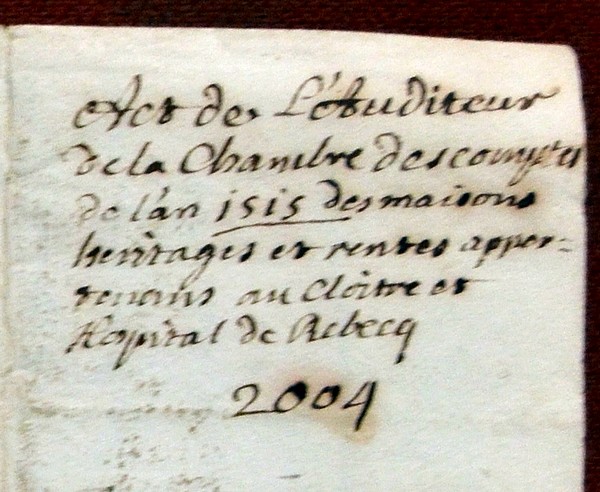 Act de L'Auditeur
de la Chambre des comptes
de l'an 1515 des maisons
heritages et rentes apper-
tenans au cloitre et
Hospital de Rebecq
2004